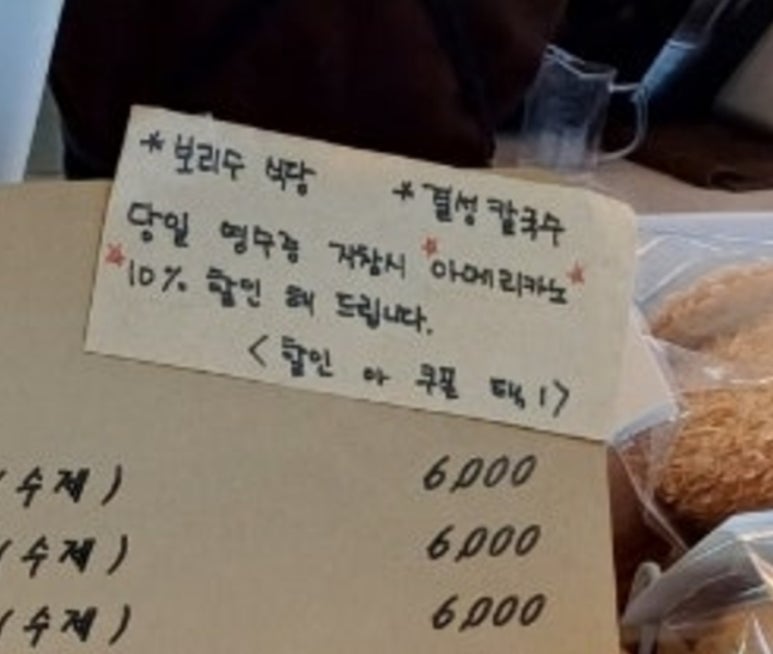 * 보리수 식당 * 결성 칼국수
당일 영수증 지참시 *아메리카노*
*10% 할인 해 드립니다.
< 할인 or 쿠폰 택 1 >
(수제) 6,000
(수제) 6,000
(수제) 6,000